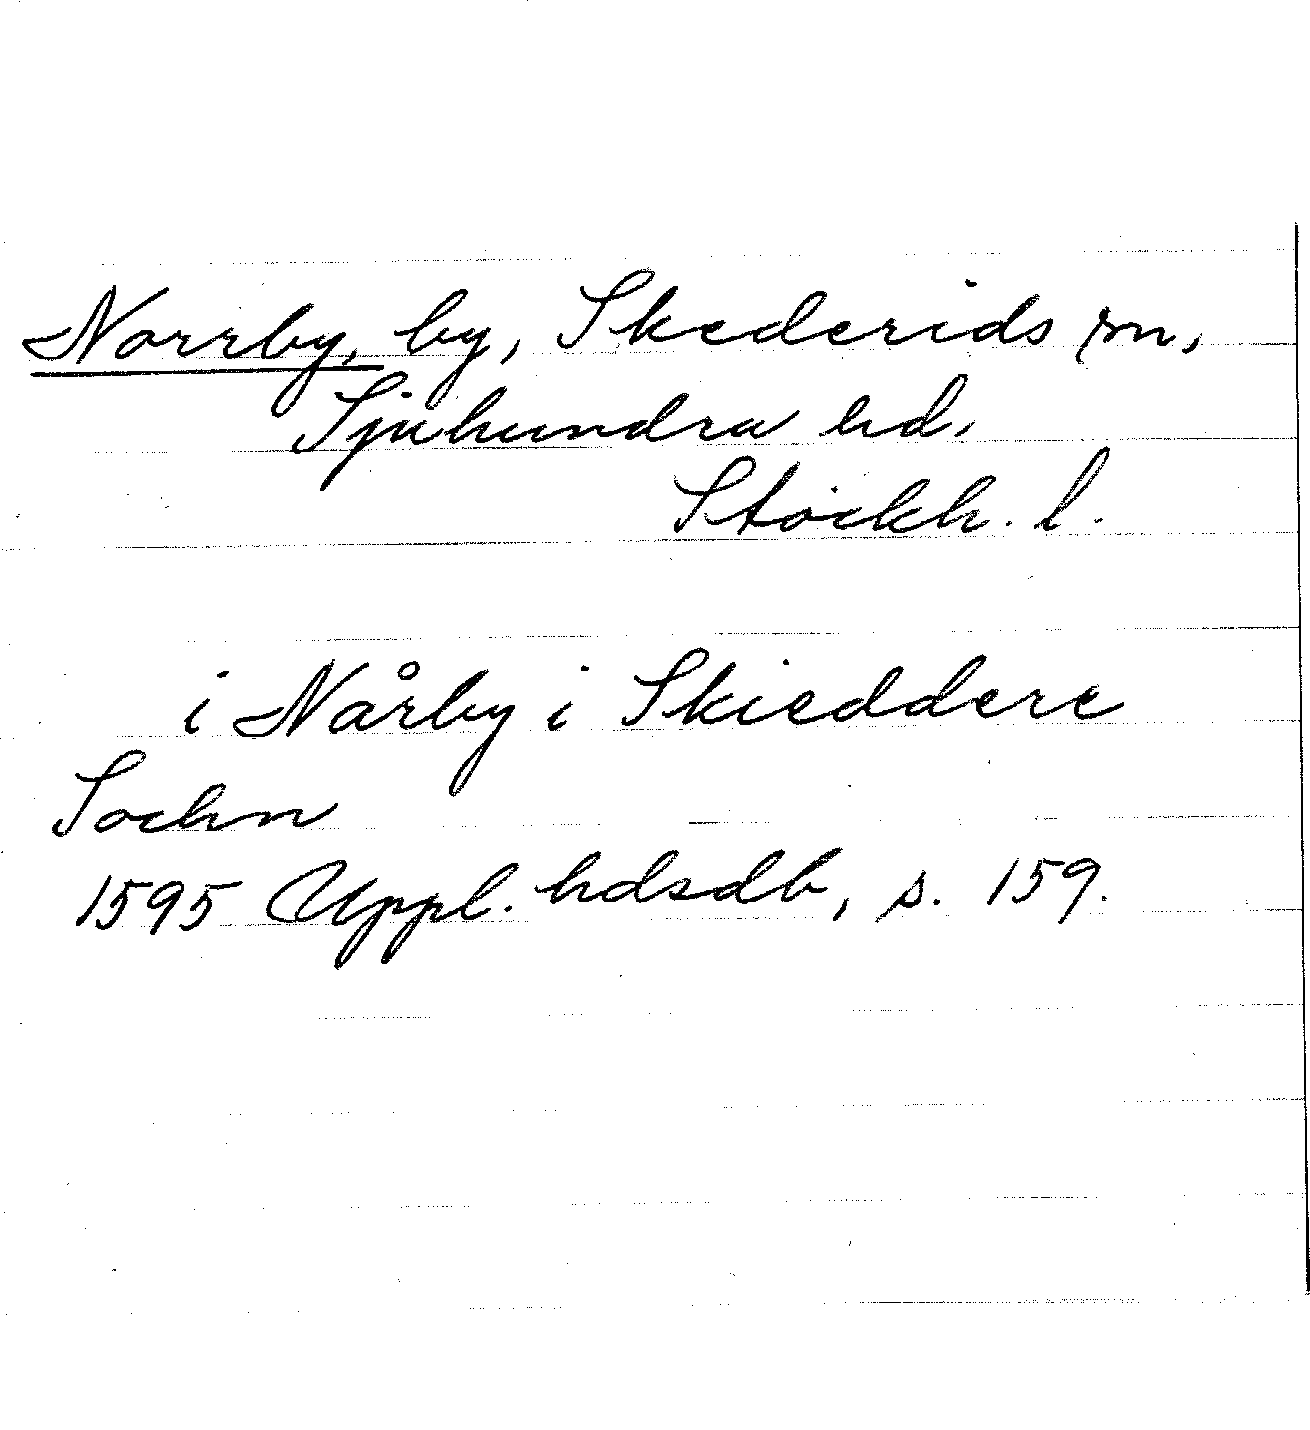 Norrby, by, Skederids sn,
Sjuhundra hd,
Stockh. l.
i Nårby i Skieddere
Sochn
1595 Uppl. hdsdb, s. 159.